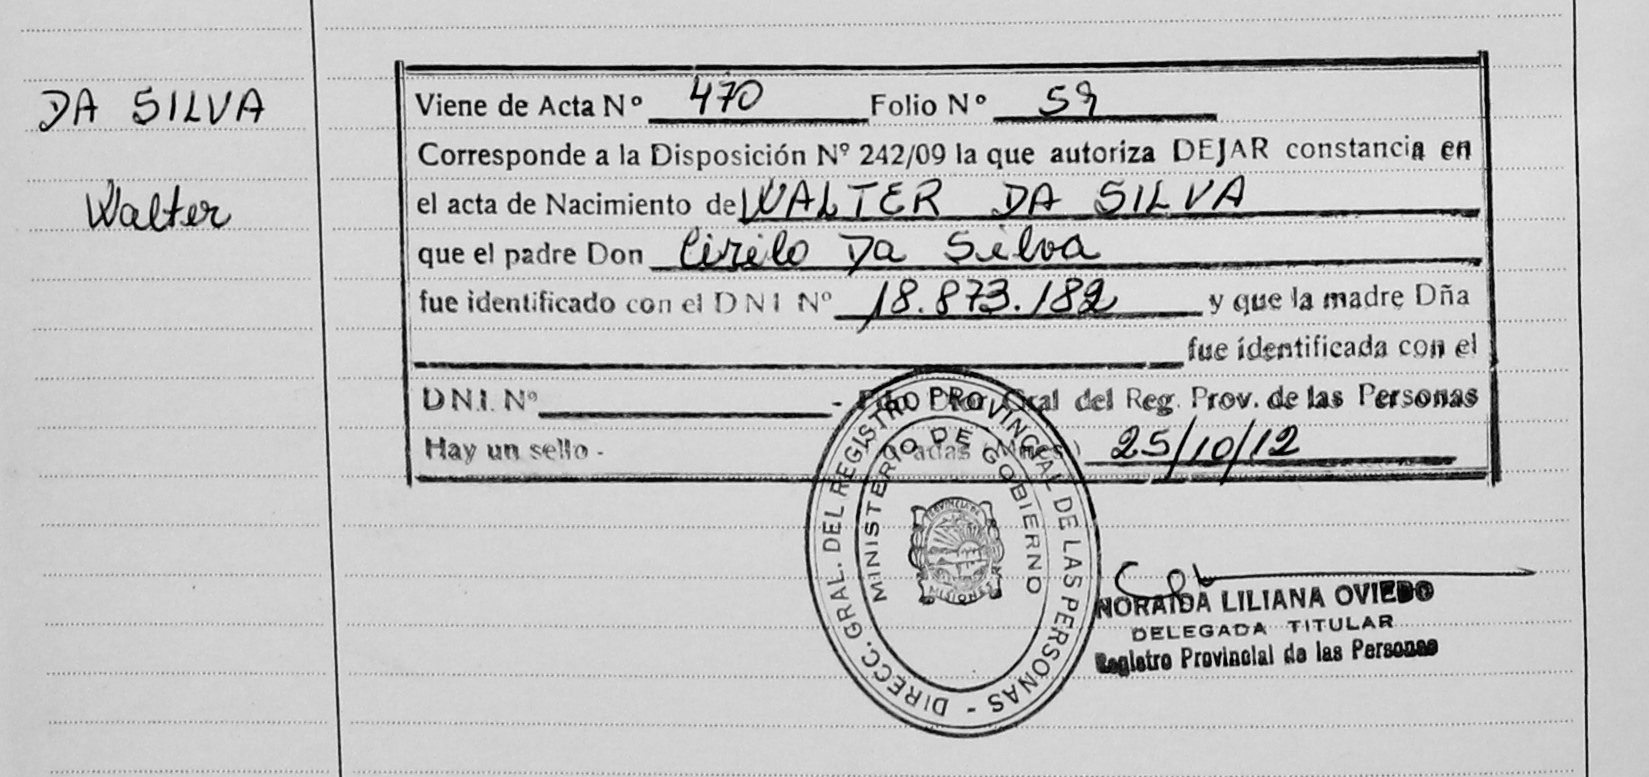 DA SILVA
Walter
Viene de Acta Nº 470 Folio Nº 59
Corresponde a la Disposición Nº 242/09 la que autoriza DEJAR constancia en
el acta de Nacimiento de WALTER DA SILVA
que el padre Don Cirilo Da Silva
fue identificado con el DNI Nº 18.873.182 y que la madre Dña
fue identificada con el
D.N.I. Nº - Gral del Reg. Prov. de las Personas
Hay un sello - 25/10/12
DIRECC. GRAL. DEL REGISTRO PROVINCIAL DE LAS PERSONAS -
MINISTERIO DE GOBIERNO
PROVINCIA DE
MISIONES
NORAIDA LILIANA OVIEDO
DELEGADA TITULAR
Registro Provincial de las Personas